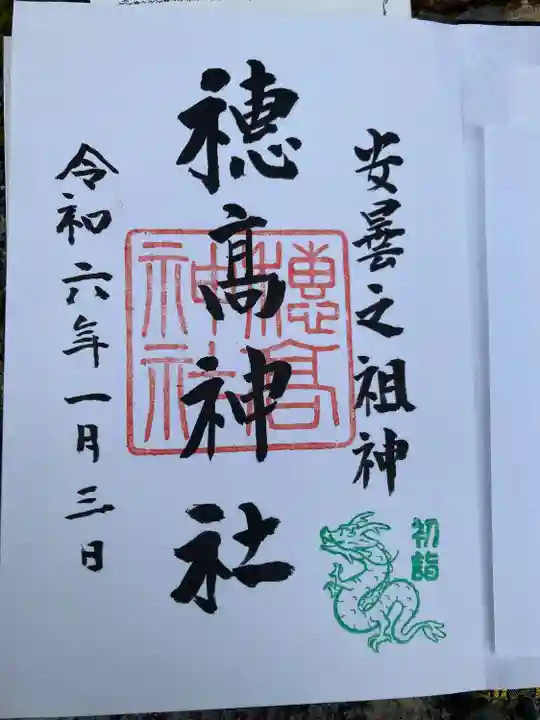 安曇之祖神
初詣
穂髙神社
穂高神社
令和六年一月三日